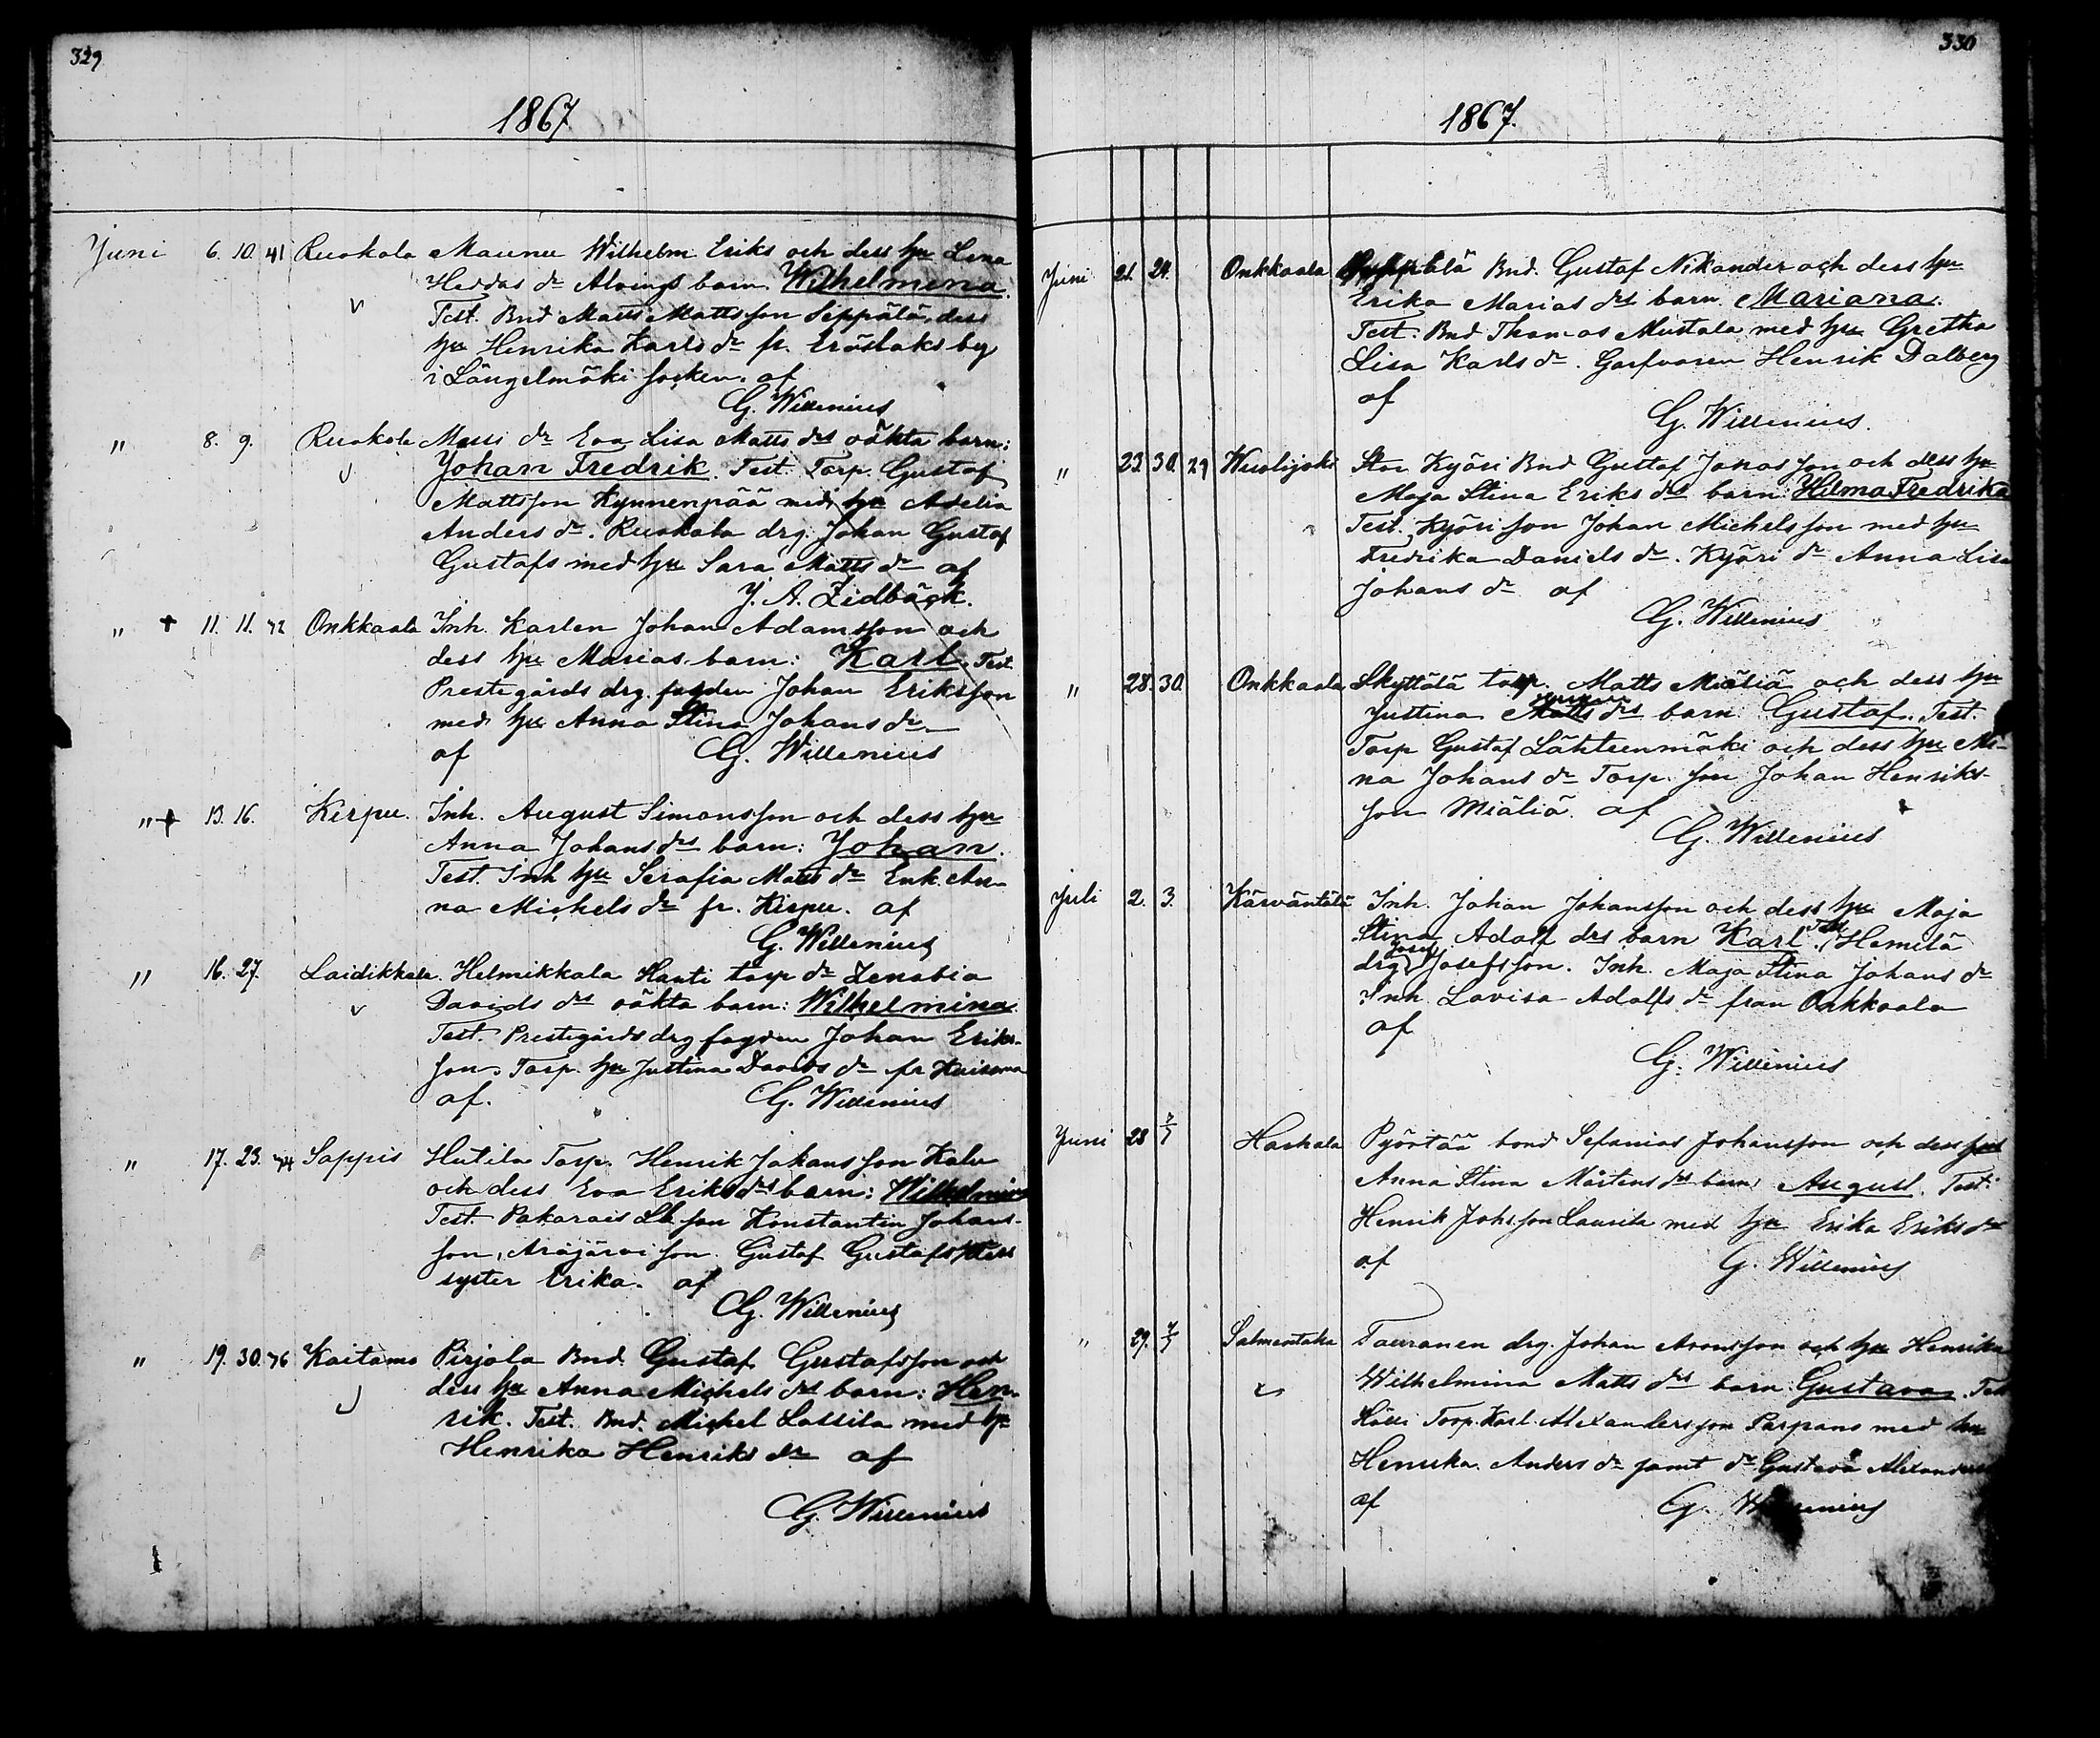 329
1867
Juni 6. 10. 41 Ruokola Maunu Wilhelm Eriks och dess hu Lena
Heddas dr Alvings barn: Wilhelmina.
Test. Bnd Matts Mattsson Seppälä, dess
hu Henrika Karls dr fr. Eräslaks by
i Längelmäki socken. af
G. Willenius
" 8. 9. Ruokola Massi dr Eva Lisa Matts drs oäkta barn:
Johan Fredrik. Test. Torp. Gustaf
Mattsson Kynnenpää med hu Adelia
Anders dr. Ruokola drg. Johan Gustaf
Gustafs med hu Sara Matts dr af
J. A. Lidbäck.
" + 11. 11. 72 Onkkaala Inh. Karlen Johan Adamsson och
dess hu Marias barn: Karl. Test.
Prestegårds drg. fogden Johan Eriksson
med hu Anna Stina Johans dr
af G. Willenius
" + 13. 16. Kirpu. Inh. August Simonsson och dess hu
Anna Johans drs barn: Johan.
Test. Inh hu Serafia Matts dr Enk. An-
na Michels dr fr. Kirpu. af
G. Willenius
" 16. 27. Laidikkala. Helmikkala Hanti torp dr Zenobia
Davids drs oäkta barn: Wilhelmina
Test. Prestegårds drg fogden Johan Eriks-
son. Torp. hu Justina Davids dr fr
af. G. Willenius
" 17. 23. 74 Sappis Hutila Torp. Henrik Johansson Kalu
och dess Eva Eriks drs barn: Wilhelmina
Test. Pakarais Lb son Konstantin Johans-
son, Arajärvi son. Gustaf Gustafs, dess
syster Erika. af
G. Willenius
" 19. 30. 76 Kaitamo Pirjola Bnd Gustaf Gustafsson och
dess hu Anna Michels drs barn: Hen-
rik. Test. Bnd. Michel Lassila med hu
Henrika Henriks dr af
G. Willenius
330
1867.
Juni 21. 24. Onkkaala Bnd. Gustaf Nikander och dess hu
Erika Marias drs barn Mariana.
Test. Bnd Thomas Mustala med hu Gretha
Lisa Karls dr. Garfvaren Henrik Dalberg
af
G. Willenius.
" 23. 30. 29 Wuolijoki Stor Kyöri Bnd Gustaf Jonasson och dess hu
Maja Stina Eriks drs barn: Hilma Fredrika
Test. Kyöri son Johan Michelsson med hu
Fredrika Daniels dr. Kyöri dr Anna Lisa
Johans dr af
G. Willenius
" 28. 30. Onkkaala Skyttälä torp. Matts Miäliä och dess hu
Justina drs barn Gustaf. Test.
Torp Gustaf Lähteenmäki och dess hu Mi-
na Johans dr Torp. son Johan Henriks-
son Miäliä. af
G. Willenius
Juli 2. 3. Kärväntälä Inh. Johan Johansson och dess hu Maja
Stina Adolf drs barn Karl. Test. Hemilä
drg. Josef Josefsson. Inh. Maja Stina Johans dr
Inh. Lovisa Adolfs dr från Onkkaala
af
G. Willenius
Juni 28 7/7 Haukala Pyörtää bond Sefanias Johansson och dess hu
Anna Stina Mårtens drs barn August. Test.
Henrik Johsson Laurila med hu Erika Eriks dr
af G. Willenius
" 29. 7/7 Salmentaka Tauranen drg. Johan Aronsson och hu Henrika
Wilhelmina Matts drs barn Gustava. Test
Torp. Karl Alexandersson Parpans med hu
Henrika Anders dr samt dr Gustava
af G. Willenius